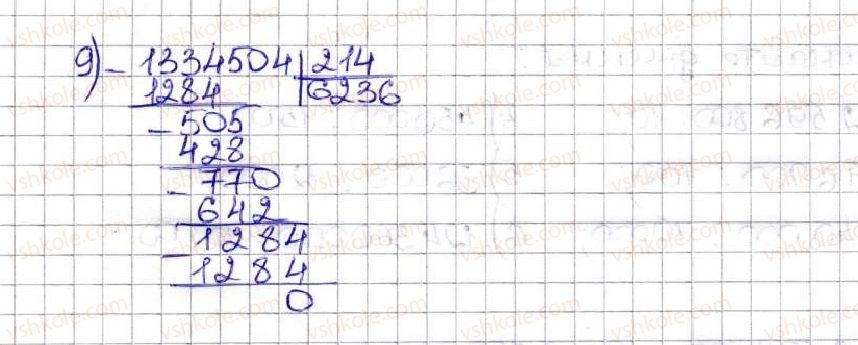 9) - 1334504 | 214
1284 | 6236
- 505
428
- 770
642
- 1284
1284
0